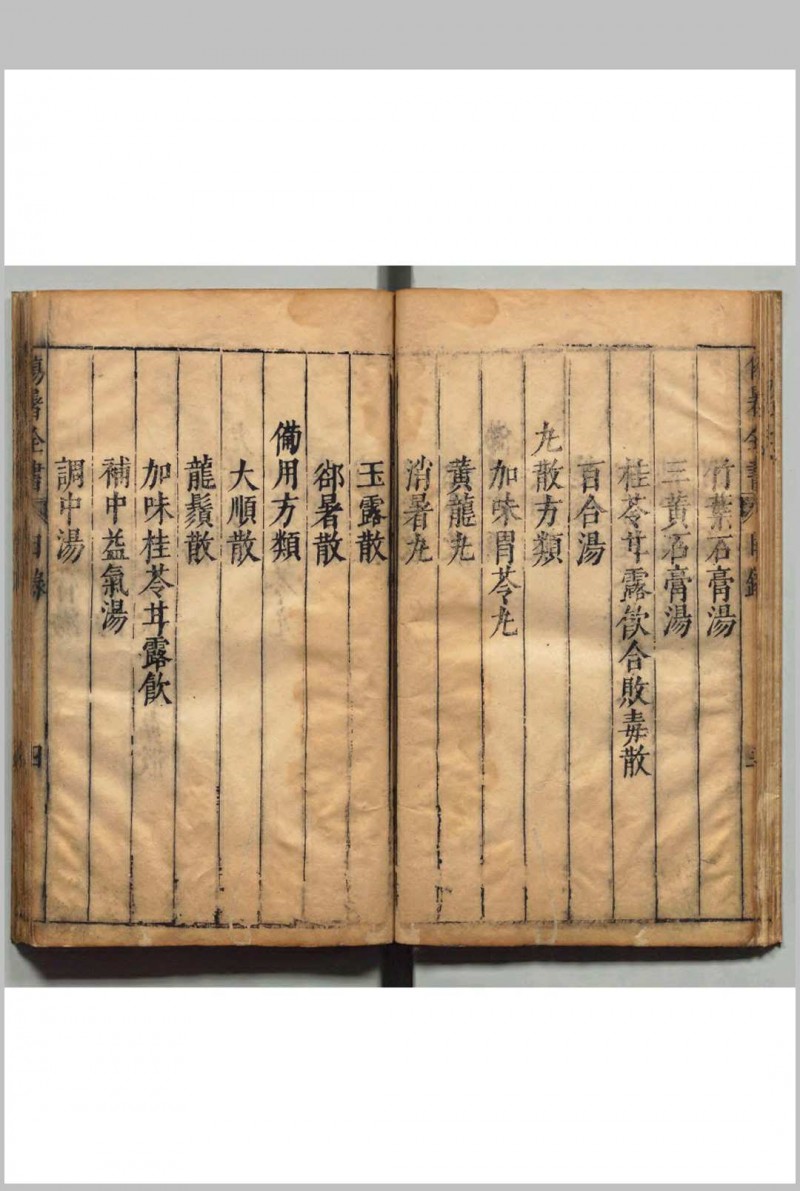 竹葉石膏湯
三黃石膏湯
桂苓甘露飲合敗毒散
百合湯
丸散方類
加味胃苓丸
黃龍丸
消暑丸
玉露散
郤暑散
備用方類
大順散
龍鬚散
加味桂苓甘露飲
補中益氣湯
調中湯
傷暑全書 目錄 四